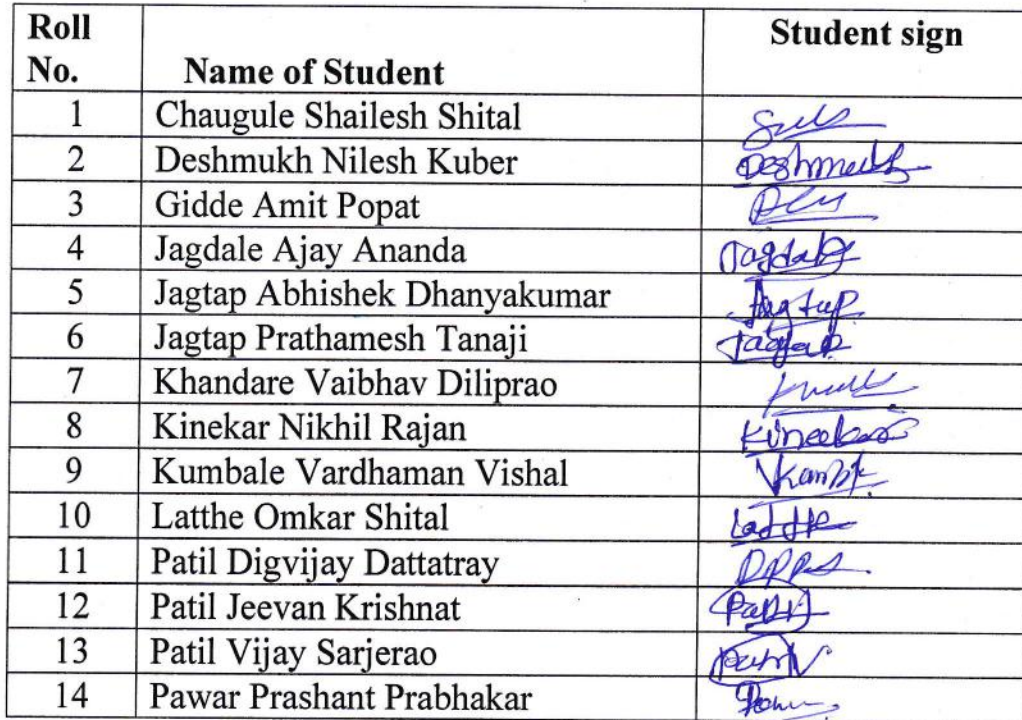 Roll No. Name of Student Student sign
1 Chaugule Shailesh Shital
2 Deshmukh Nilesh Kuber Deshmukh
3 Gidde Amit Popat
4 Jagdale Ajay Ananda Jagdale
5 Jagtap Abhishek Dhanyakumar Jagtap
6 Jagtap Prathamesh Tanaji Jagtap
7 Khandare Vaibhav Diliprao
8 Kinekar Nikhil Rajan Kinekar
9 Kumbale Vardhaman Vishal
10 Latthe Omkar Shital
11 Patil Digvijay Dattatray
12 Patil Jeevan Krishnat
13 Patil Vijay Sarjerao
14 Pawar Prashant Prabhakar